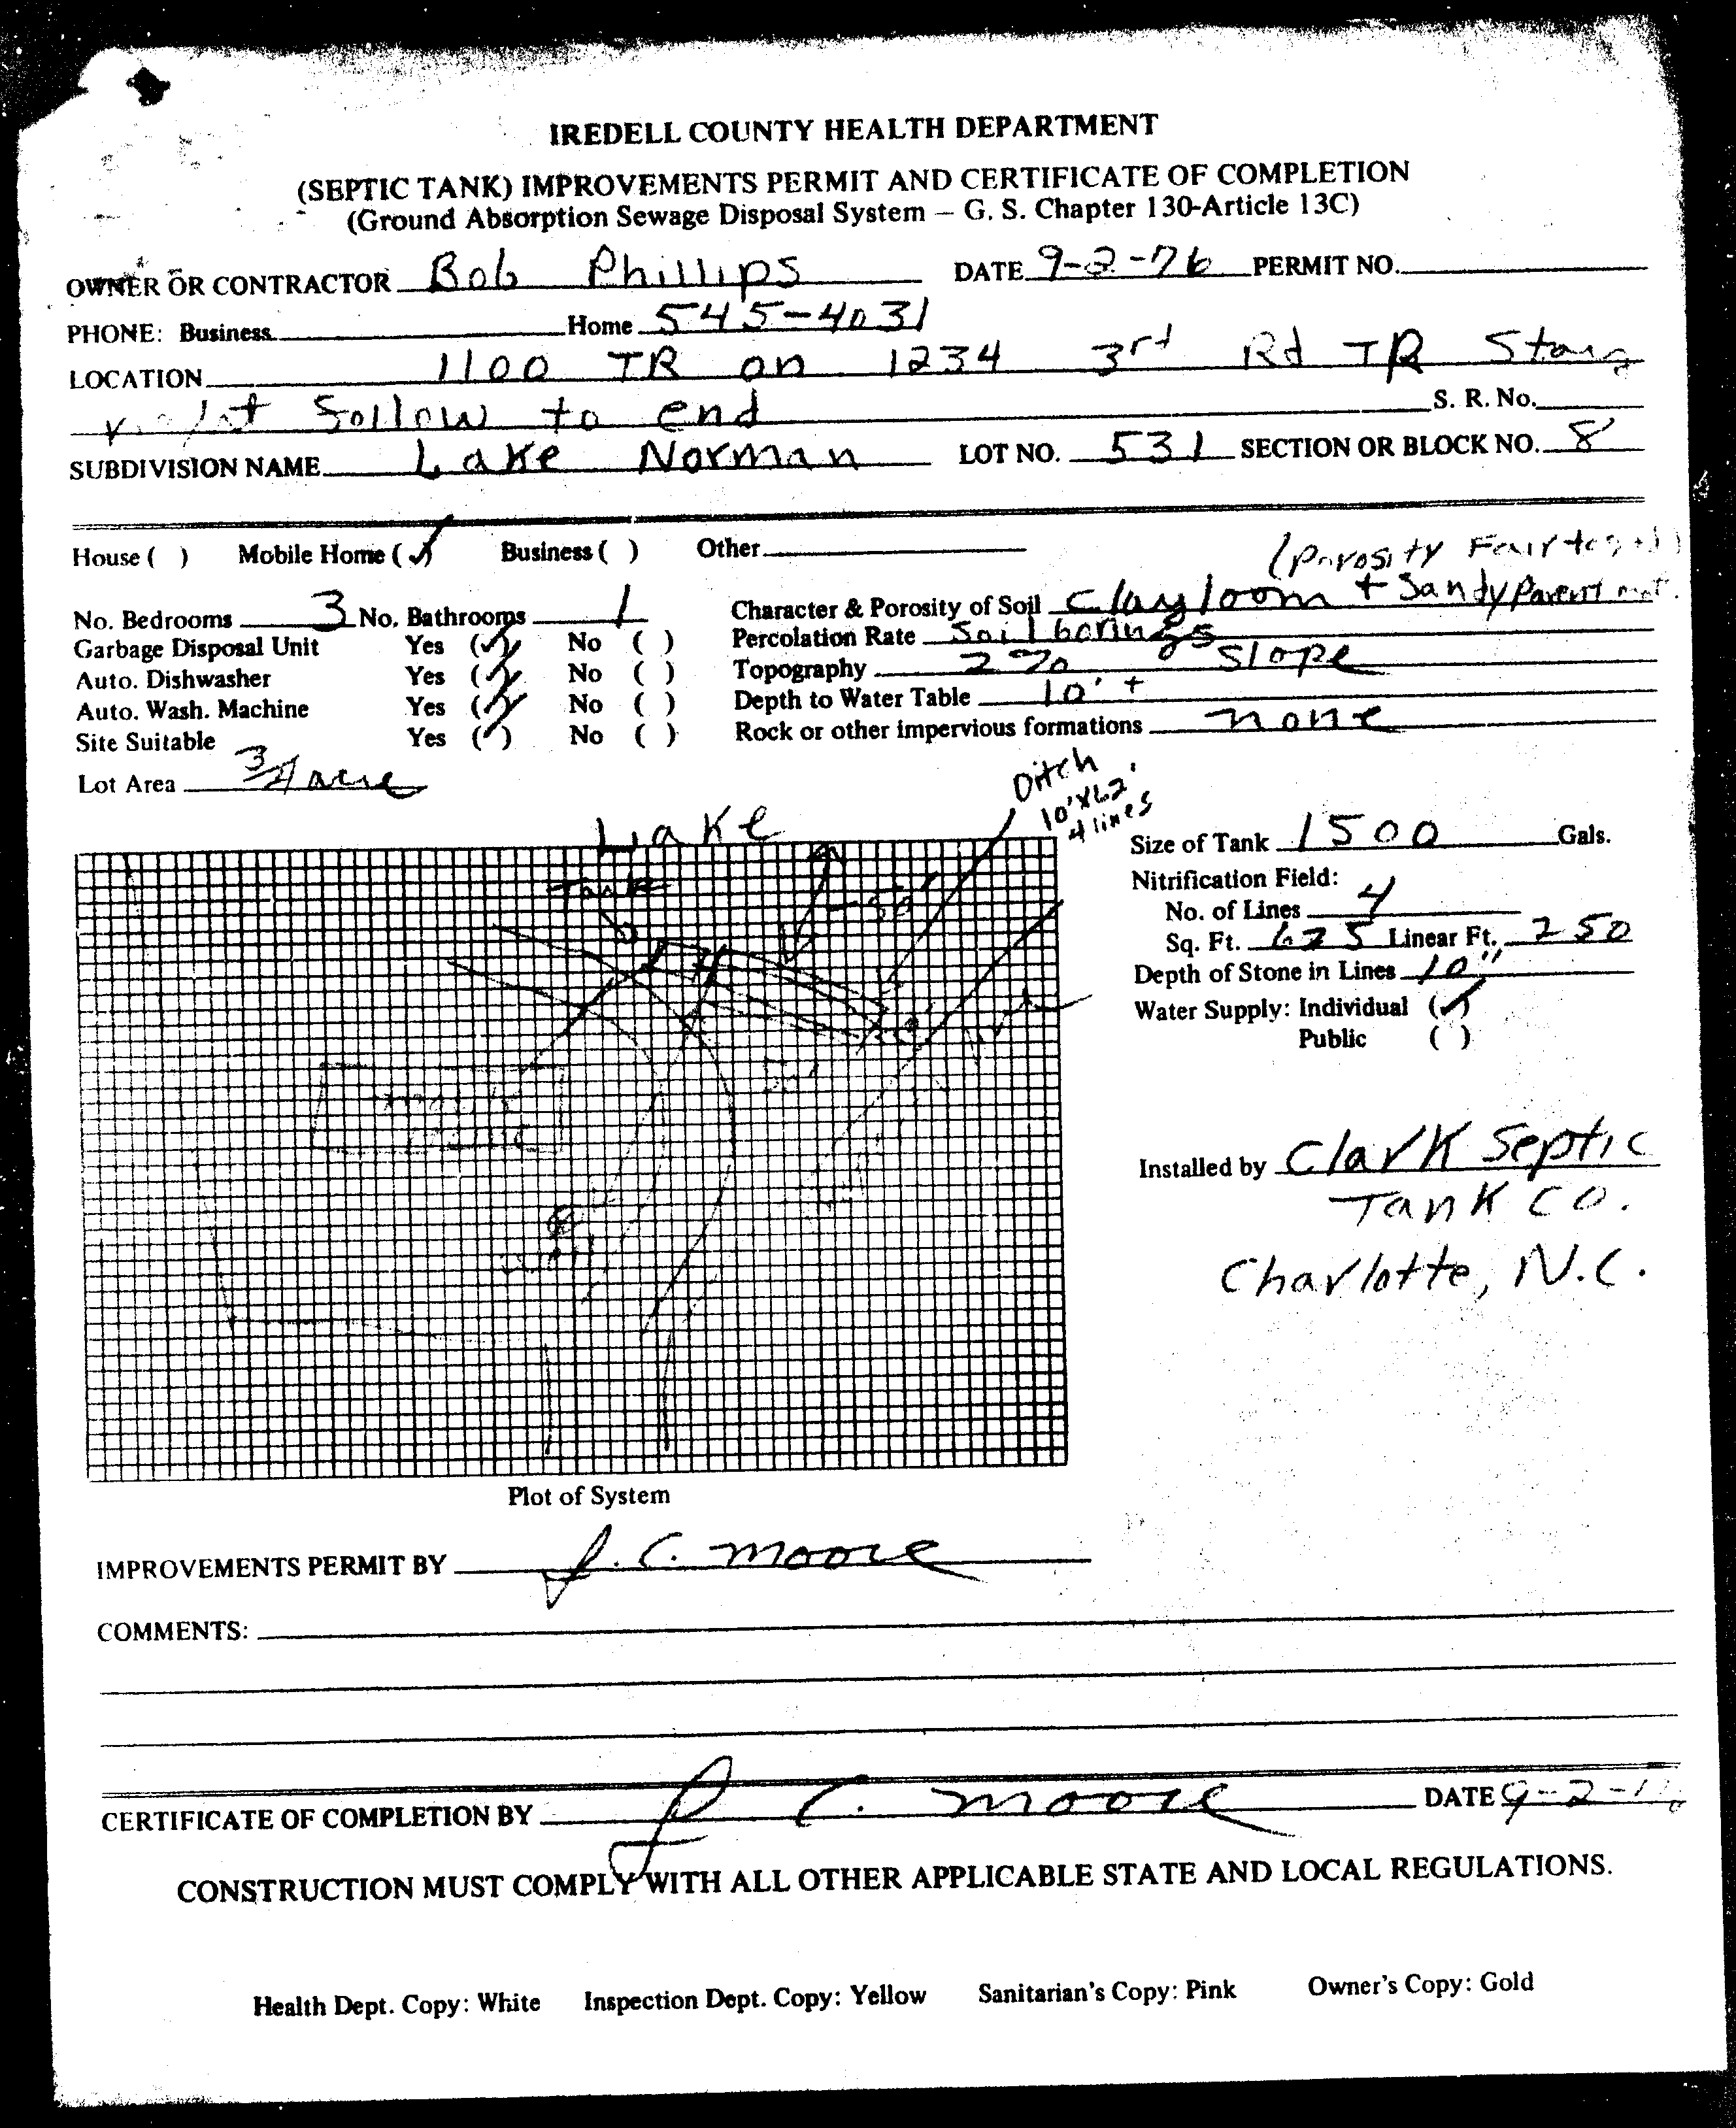 IREDELL COUNTY HEALTH DEPARTMENT
(SEPTIC TANK) IMPROVEMENTS PERMIT AND CERTIFICATE OF COMPLETION
(Ground Absorption Sewage Disposal System – G. S. Chapter 130-Article 13C)
OWNER OR CONTRACTOR Bob Phillips DATE 9-2-76 PERMIT NO.
PHONE: Business Home 545-4031
LOCATION 1100 TR on 1234 3rd Rd TR Stay
right follow to end S. R. No.
SUBDIVISION NAME Lake Norman LOT NO. 531 SECTION OR BLOCK NO. 8
House ( ) Mobile Home (✓) Business ( ) Other
(Porosity Fair to
No. Bedrooms 3 No. Bathrooms 1 Character & Porosity of Soil Clay loom + Sandy Parent mat.
Garbage Disposal Unit Yes (✓) No ( ) Percolation Rate Soil borings
Auto. Dishwasher Yes (✓) No ( ) Topography 2% slope
Auto. Wash. Machine Yes (✓) No ( ) Depth to Water Table 10' +
Site Suitable Yes (✓) No ( ) Rock or other impervious formations none
Lot Area 3/4 acre
Ditch
10'x62'
4 lines
Lake
Tank
50'
Size of Tank 1500 Gals.
Nitrification Field:
No. of Lines 4
Sq. Ft. 625 Linear Ft. 250
Depth of Stone in Lines 10"
Water Supply: Individual (✓)
Public ( )
Installed by Clark Septic
Tank Co.
Charlotte, N.C.
Plot of System
IMPROVEMENTS PERMIT BY J. C. Moore
COMMENTS:
CERTIFICATE OF COMPLETION BY J. C. Moore DATE 9-2-76
CONSTRUCTION MUST COMPLY WITH ALL OTHER APPLICABLE STATE AND LOCAL REGULATIONS.
Health Dept. Copy: White Inspection Dept. Copy: Yellow Sanitarian's Copy: Pink Owner's Copy: Gold